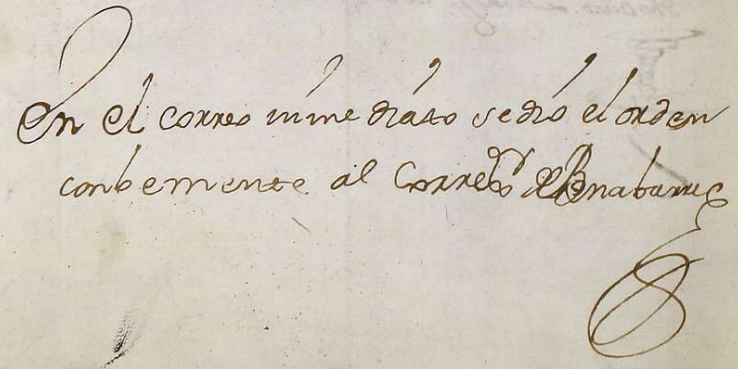 En el Correo inmediato se dió el orden
combemente al Corregor de Benabarre